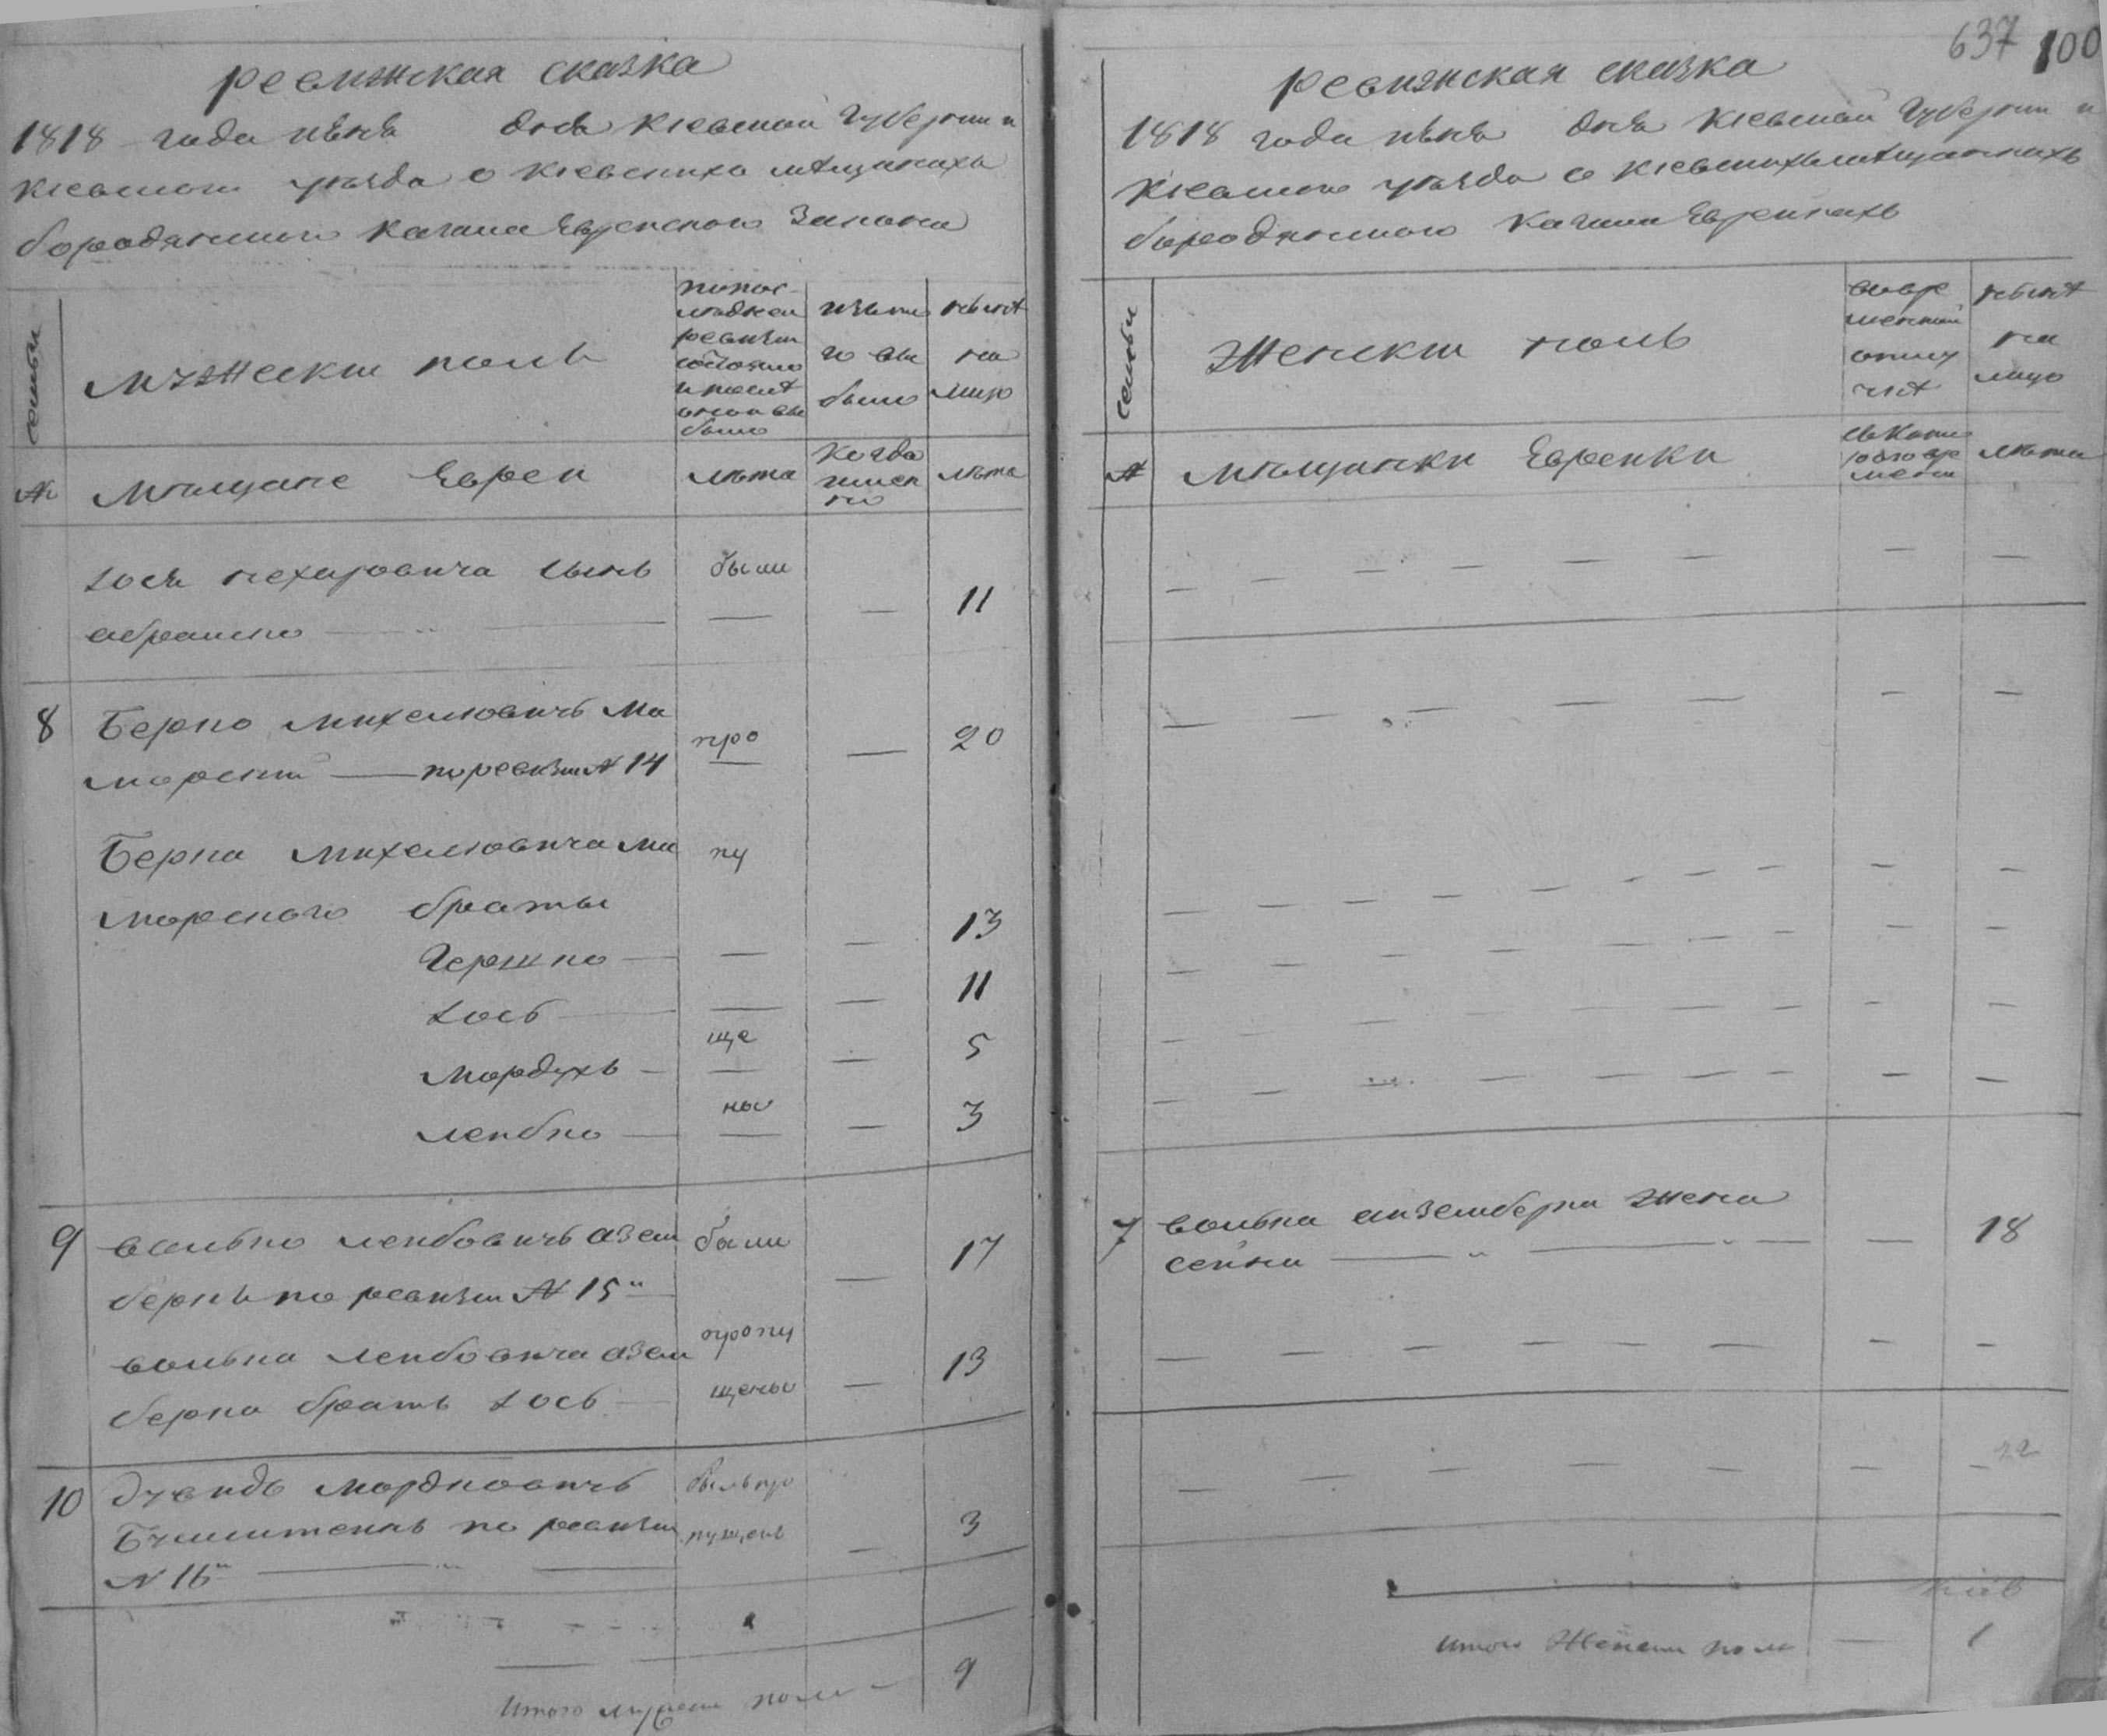 ревижская сказка
1818 года июня дня Киевской Губернии и
Киевского уезда о Киевскихъ мещанахъ
бородянского Кагала Еврейского Закона
семьи
мужеский полъ
по пос-
ледней
ревизии
состояло
и после
оной вы
было
изъ того
числа вы
было
ныне
на
лицо
№
мещане Евреи
лета
когда
имен
но
лета
Іося нехаровича сынъ
абрамко
были
—
—
11
8
Берко михелювичъ Ма
морский — по ревизии № 14
про
—
—
20
Берка михелювича ма
морского братья
пу
Гершко — — — 13
Іось — — — 11
мордухъ — ще — — 5
лейбко — ны — — 3
9
волько лейбовичъ азем
беркъ по ревизии № 15
были
—
17
волька лейбовича азем
берка братъ Іось
пропу
щены
—
13
10
Дувидъ мордковичъ
по ревизии
№ 16
былъ про
пущенъ
—
3
Итого мужеска пола — 9
637 100
ревижская сказка
1818 года июня дня Киевской Губернии и
Киевского уезда о Киевскихъ мещанкахъ
бородянского Кагала Еврейкахъ
семьи
Женский полъ
во вре
менной
отлуч
ке
ныне
на
лицо
№
мещанки Еврейки
съ коего
времени
лета
7
волька анземберка жена
сейна — — 18
22
Итого Женска пола — 1